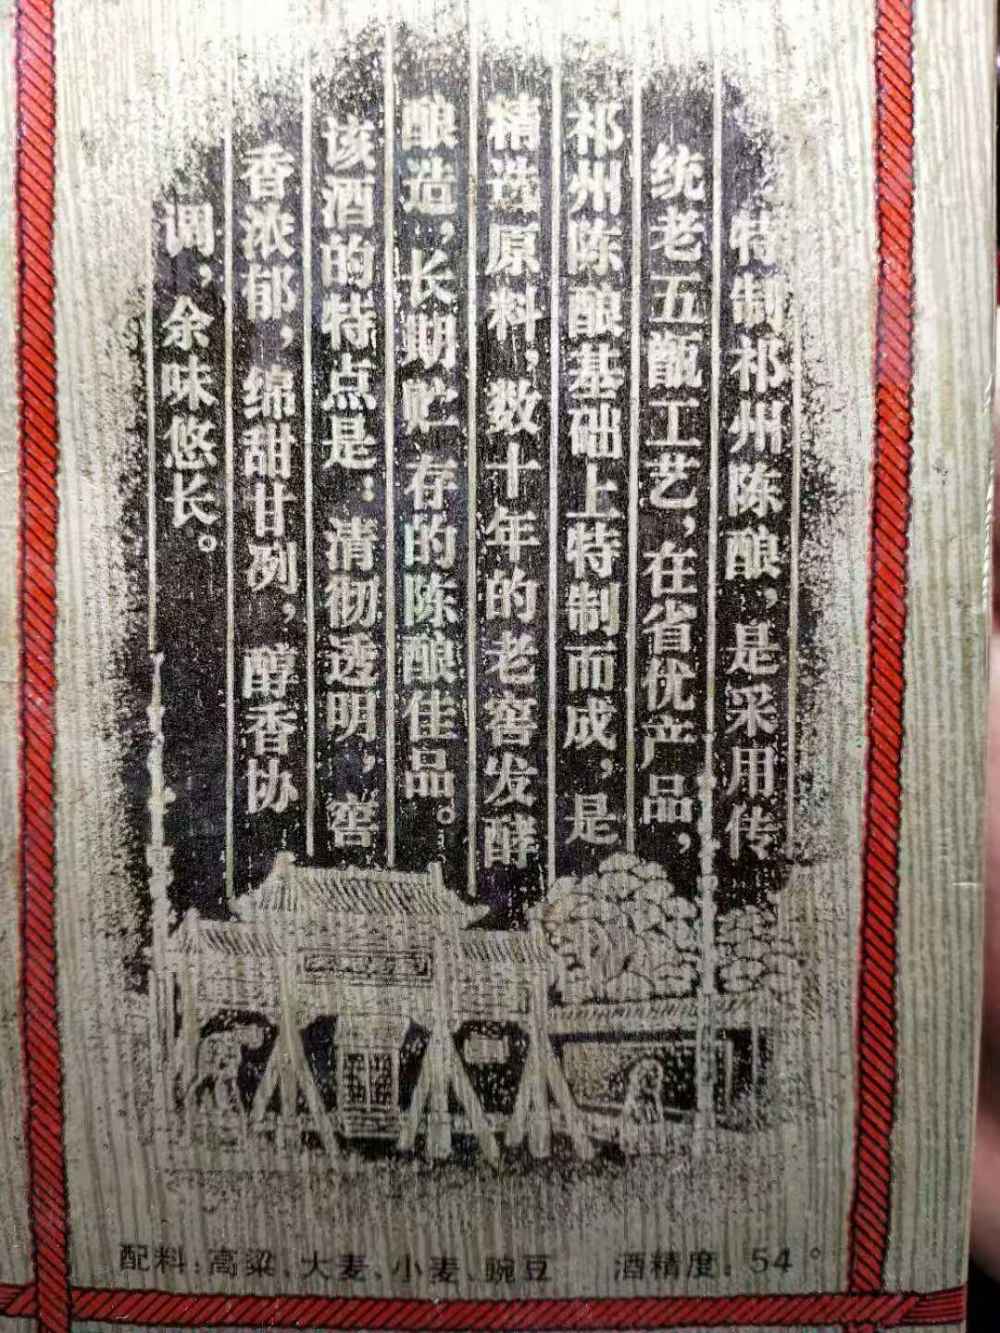 特制祁州陈酿，是采用传
统老五甑工艺，在省优产品，
祁州陈酿基础上特制而成，是
精选原料，数十年的老窖发酵
酿造，长期贮存的陈酿佳品。
该酒的特点是：清彻透明，窖
香浓郁，绵甜甘冽，醇香协
调，余味悠长。
配料：高粱、大麦、小麦、豌豆 酒精度：54°